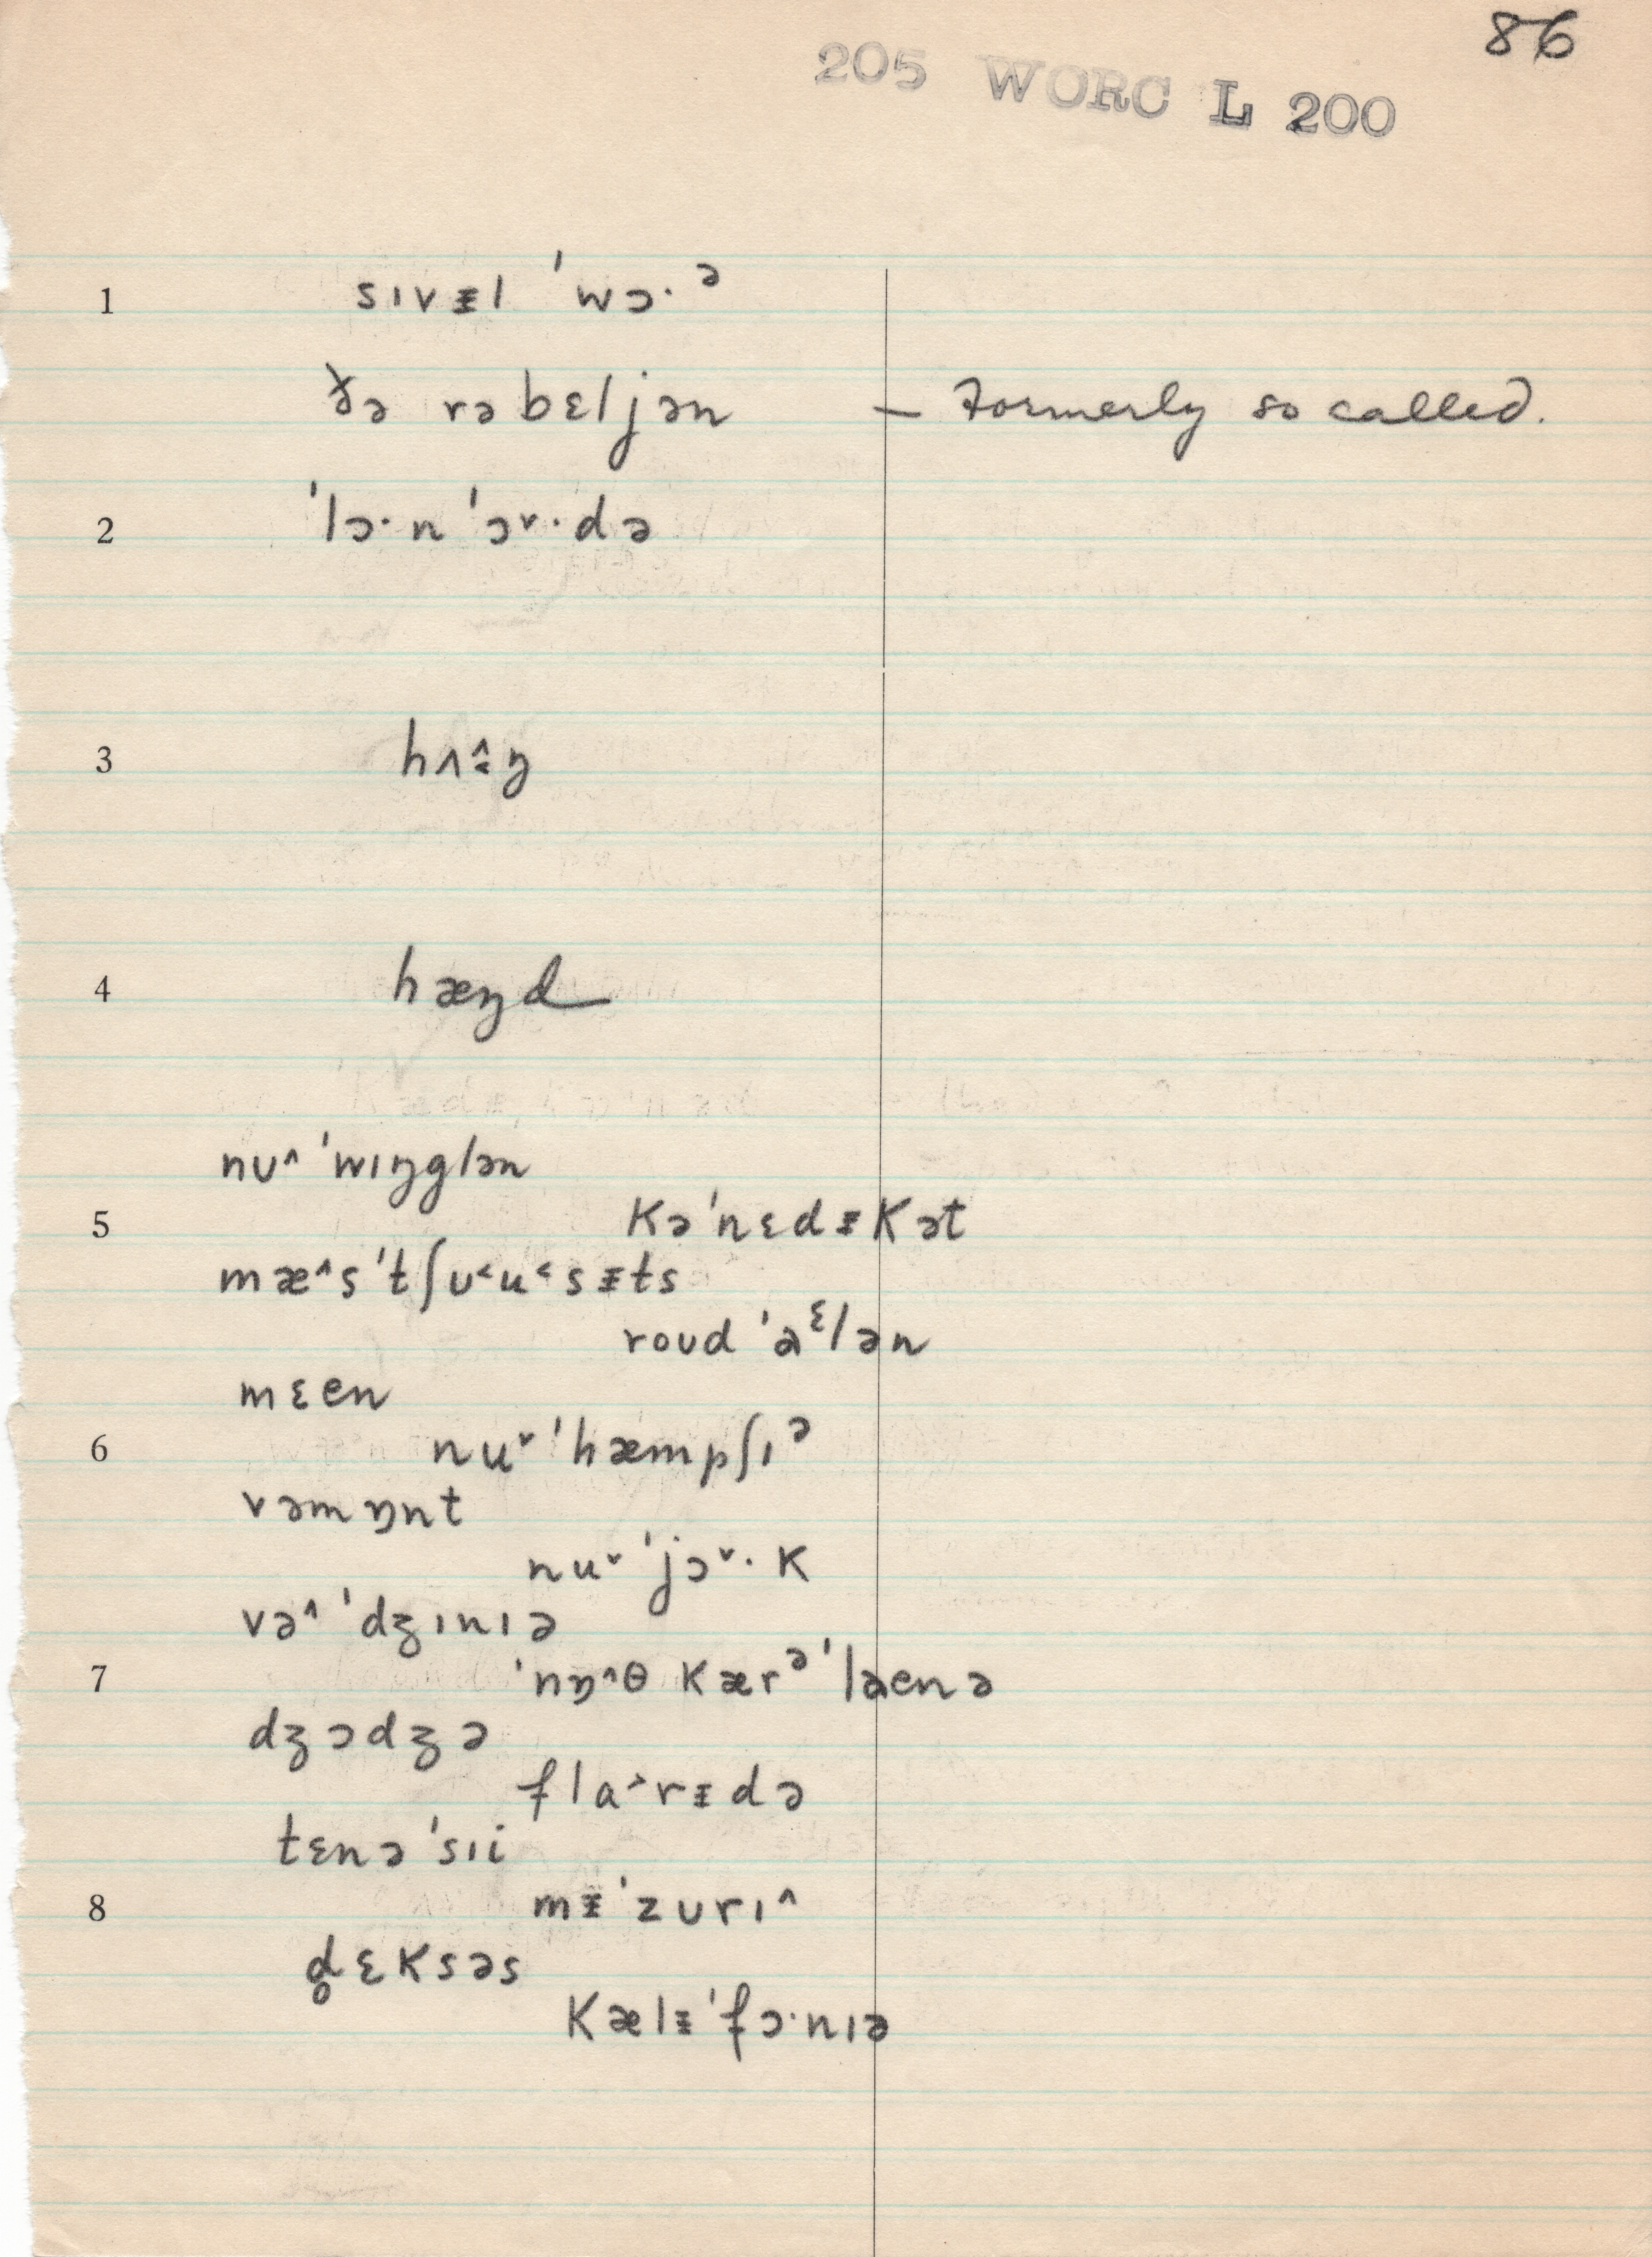 86
205 WORC L 200
1 sɪvᵻl ˈwɔ·ᵊ
ðə rəbɛljən – Formerly so called.
2 ˈlɔ·n ˈɔ˅·də
3 hʌ˄˂ŋ
4 hæŋd
nʊ˄ ˈwɪŋglən
5 kəˈnɛdᵻkət
mæ˄sˈtʃʊ˂u˂sᵻts
roʊd ˈaᵋlən
mɛen
6 nu˅ ˈhæmpʃɪᵊ
vəmɒnt
nu˅ ˈjɔ˅·k
və˄ˈdʒɪnɪə
7 ˈnɒ˄θ kærᵊˈlaenə
dʒɔdʒə
fla˃rᵻdə
tɛnəˈsɪi
8 mᵻˈzʊrɪ˄
d̥ɛksəs
kælᵻˈfɔ·nɪə